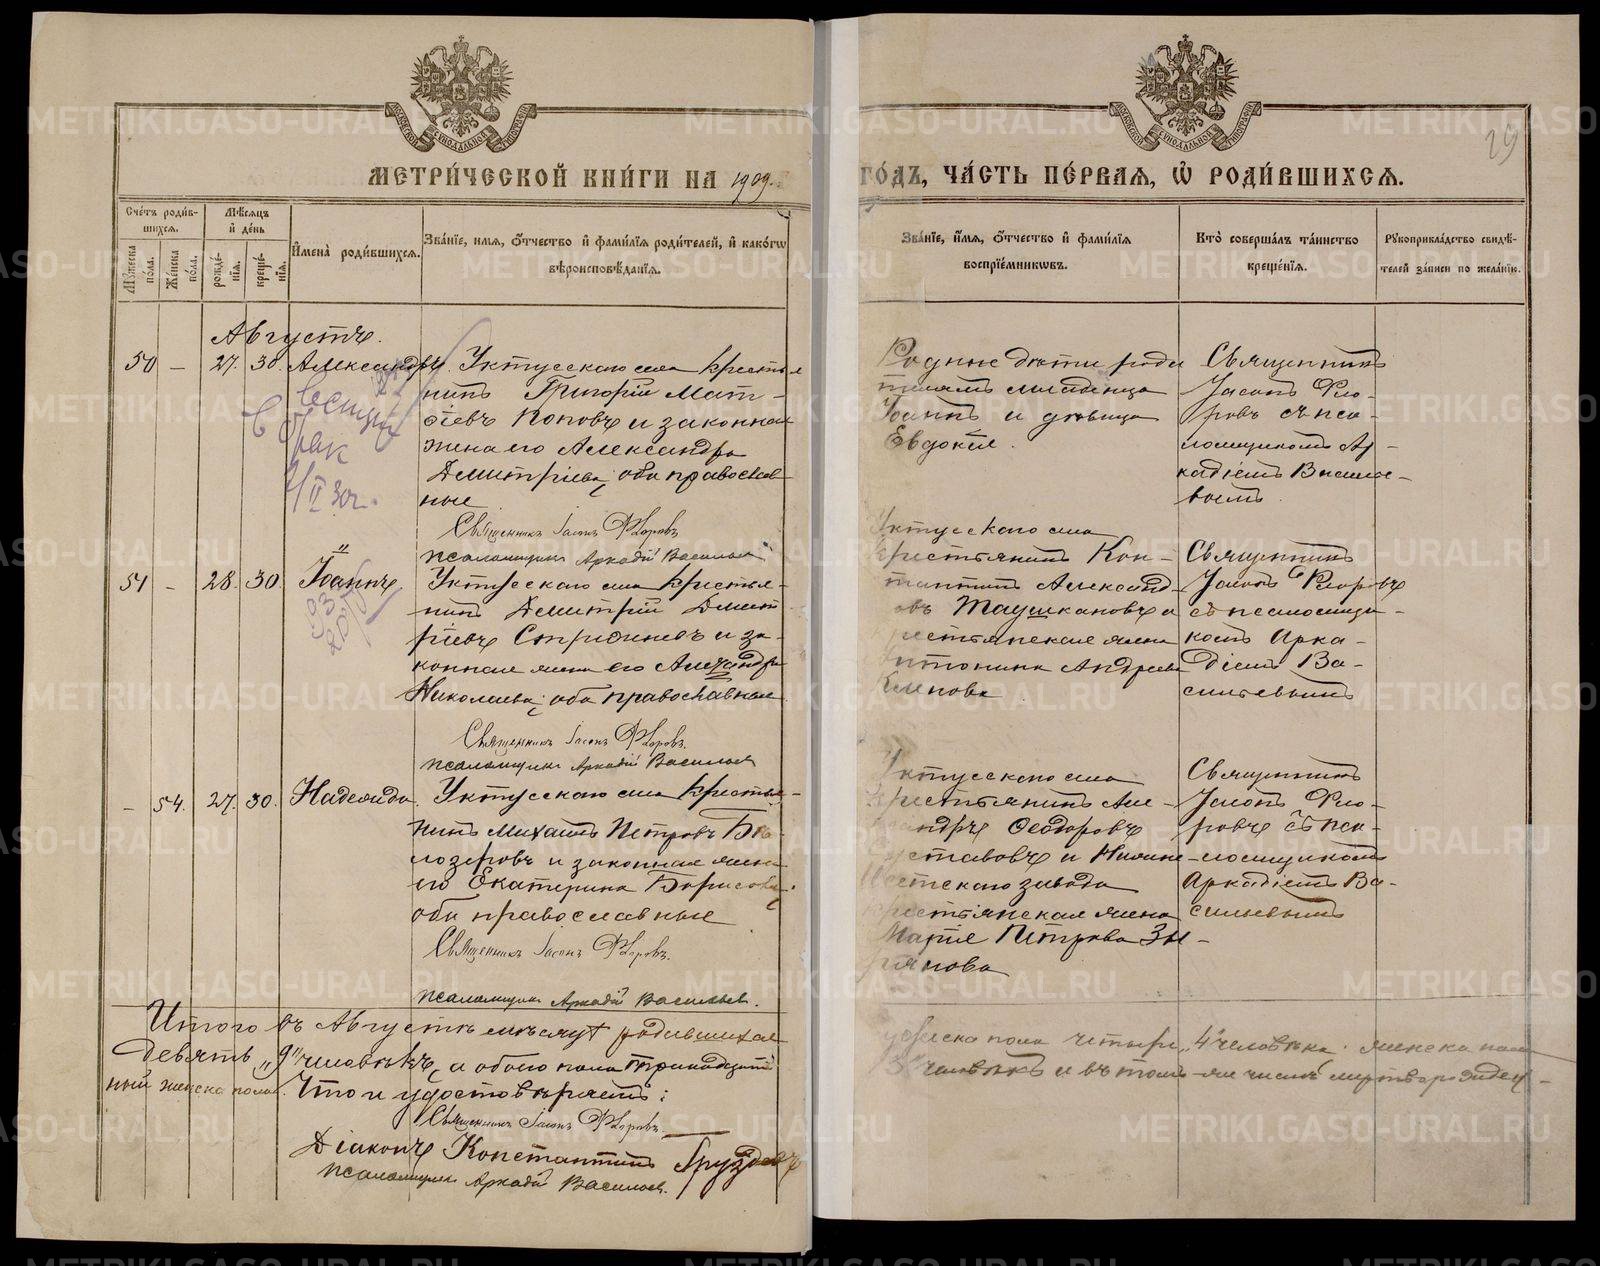 МЕТРИ́ЧЕСКОЙ КНИ́ГИ НА 1909
ГО́ДЪ, ЧА́СТЬ ПЕ́РВАЯ, Ѽ РОДИ́ВШИХСЯ.
29
Сче́тъ роди́в-
шихся.
Му́жеска по́ла.
Же́нска по́ла.
Мѣ́сяцъ
и҆ де́нь
рожде́-
нїя.
креще́-
нїя.
И҆мена̀ роди́вшихся.
Зва́нїе, имя, ѻ҆́тчество и҆ фами́лїя роди́телей, и҆ како́гѡ
вѣроисповѣ́данїя.
Зва́нїе, и҆́мя, ѻ҆́тчество и҆ фами́лїя
воспрїе́мникѡвъ.
Кто̀ соверша́лъ та́инство
креще́нїя.
Рꙋкоприкла́дство свидѣ́-
телей за́писи по жела́нїю.
Августъ.
50 — 27. 30. Александръ.
Уктусскаго села крестья
нинъ Григорій Мат-
ѳіевъ Поповъ и законная
жена его Александра
Дмитріева, оба православ
ные
Священникъ Іасонъ Флоровъ
псаломщикъ Аркадій Васильевъ
Родные дѣти роди
телямъ младенца
Іоаннъ и дѣвица
Евдокія.
Священникъ
Іасонъ Фло-
ровъ съ пса-
ломщикомъ Ар-
кадіемъ Василье-
вымъ.
брак
2/II 30г.
51 - 28. 30. Іоаннъ
Уктусскаго села крестья-
нинъ Дмитрій Дмит
ріевъ и за-
конная жена его Александра
Николаева, оба православные
Священникъ Іасонъ Флоровъ.
псаломщикъ Аркадій Васильевъ
Уктусскаго села
крестьянинъ Кон-
стантинъ Александ-
овъ Таушкановъ и
крестьянская жена
Антонина Андреева
Священникъ
Іасонъ Флоровъ
съ псаломщи-
комъ Арка-
діемъ Ва-
сильевымъ
— 54. 27. 30. Надежда.
Уктусскаго села крестья-
нинъ Михаилъ Петровъ Бѣ-
лозеровъ и законная жена
его Екатерина Борисова,
оба православные
Священникъ Іасонъ Флоровъ.
псаломщикъ Аркадій Васильевъ.
Уктусскаго села
крестьянинъ Але-
ксандръ Ѳеодоровъ
и Нижне-
Исетскаго завода
крестьянская жена
Марія Петрова Зы-
рянова
Священникъ
Іасонъ Фло-
ровъ съ пса-
ломщикомъ
Аркадіемъ Ва-
сильевымъ
Итого въ Августѣ мѣсяцѣ родившихся
мужеска пола четыре „4" человѣка, женска пола
девять „9" человѣкъ, а обоего пола тринадцать
„13" человѣкъ и въ томъ-же числѣ мертворожден-
ный женска пола. Что и удостовѣряемъ:
Священникъ Іасонъ Флоровъ.
Діаконъ Константинъ Груздевъ
псаломщикъ Аркадій Васильевъ.
METRIKI.GASO-URAL.RU